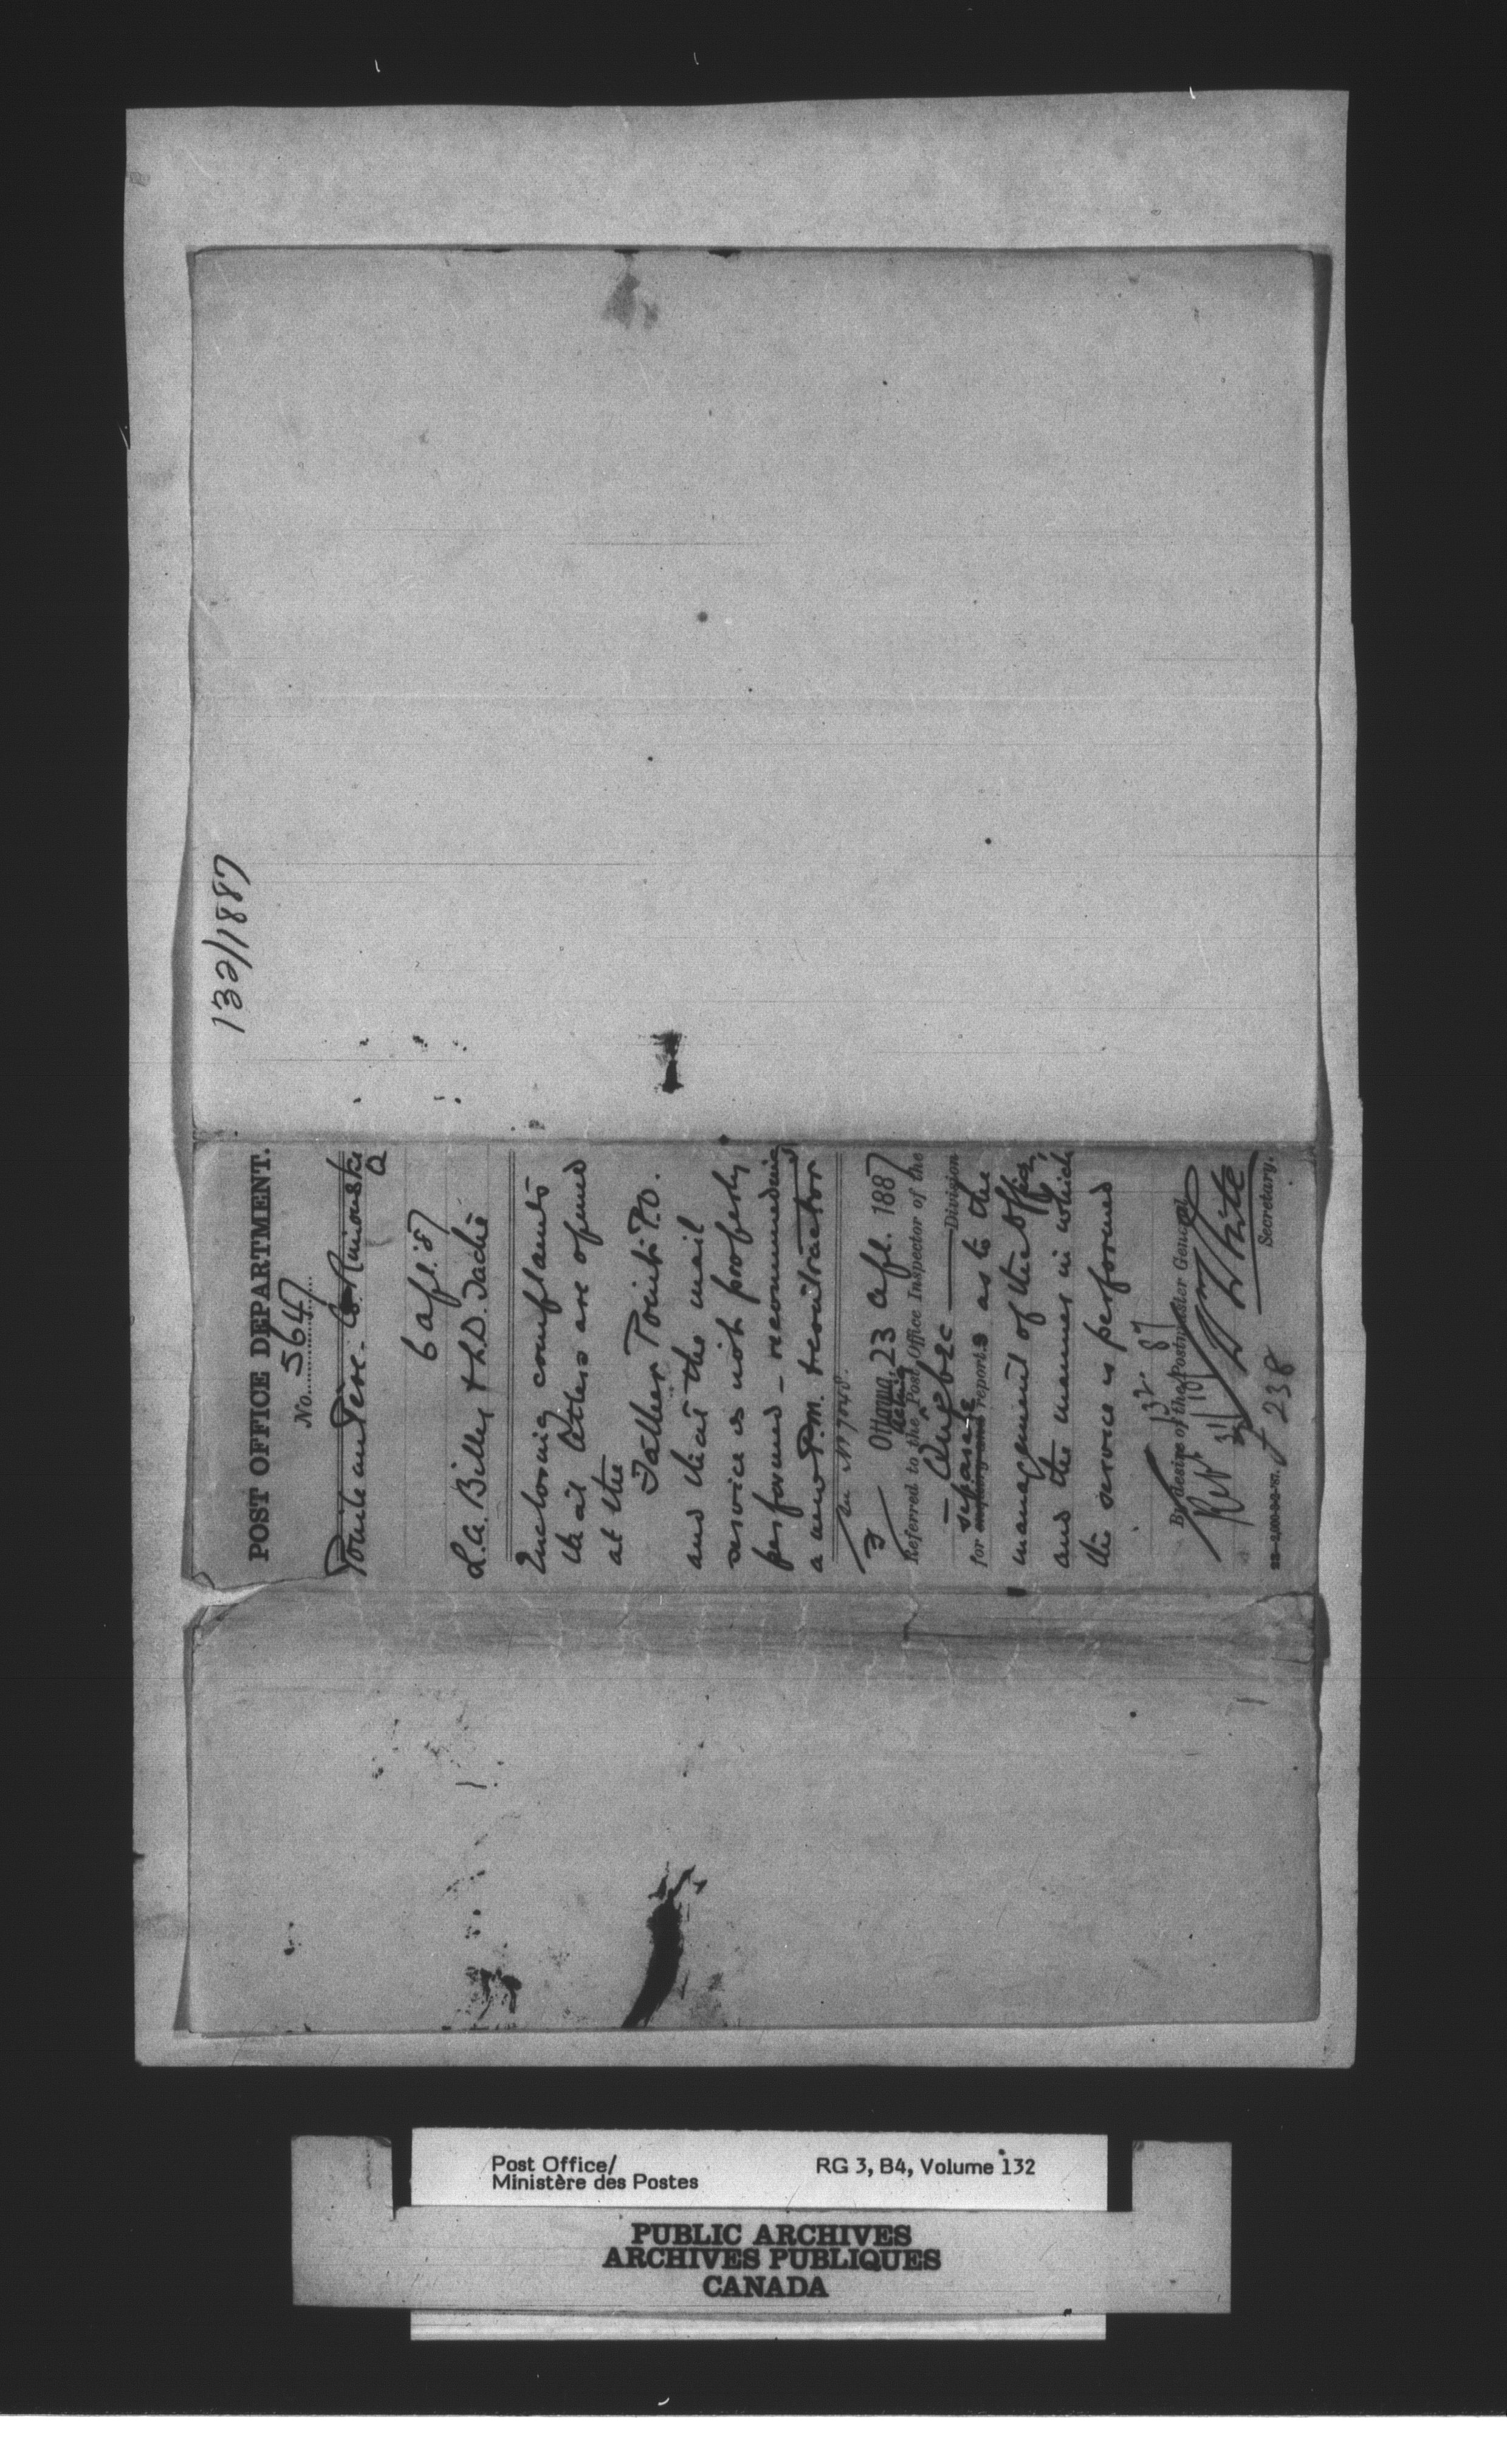 132/1887
POST OFFICE DEPARTMENT.
No. 5647
Pointe au Père - Co. Rimouski
Q
6 Apl. '87
L.A. Billy & L.D. Taché
Enclosing complaints
that letters are opened
at the
Father Point P.O.
and that the mail
service is not properly
performed - recommending
a new P.M. & contractor
Ottawa, 23 Apl. 1887
Referred to the Post Office Inspector of the
Quebec Division
separate
for report.s as to the
management of the Office,
and the manner in which
the service is performed
By desire of the Postmaster General,
Wm White
Secretary.
238
Post Office/
Ministère des Postes
RG 3, B4, Volume 132
PUBLIC ARCHIVES
ARCHIVES PUBLIQUES
CANADA